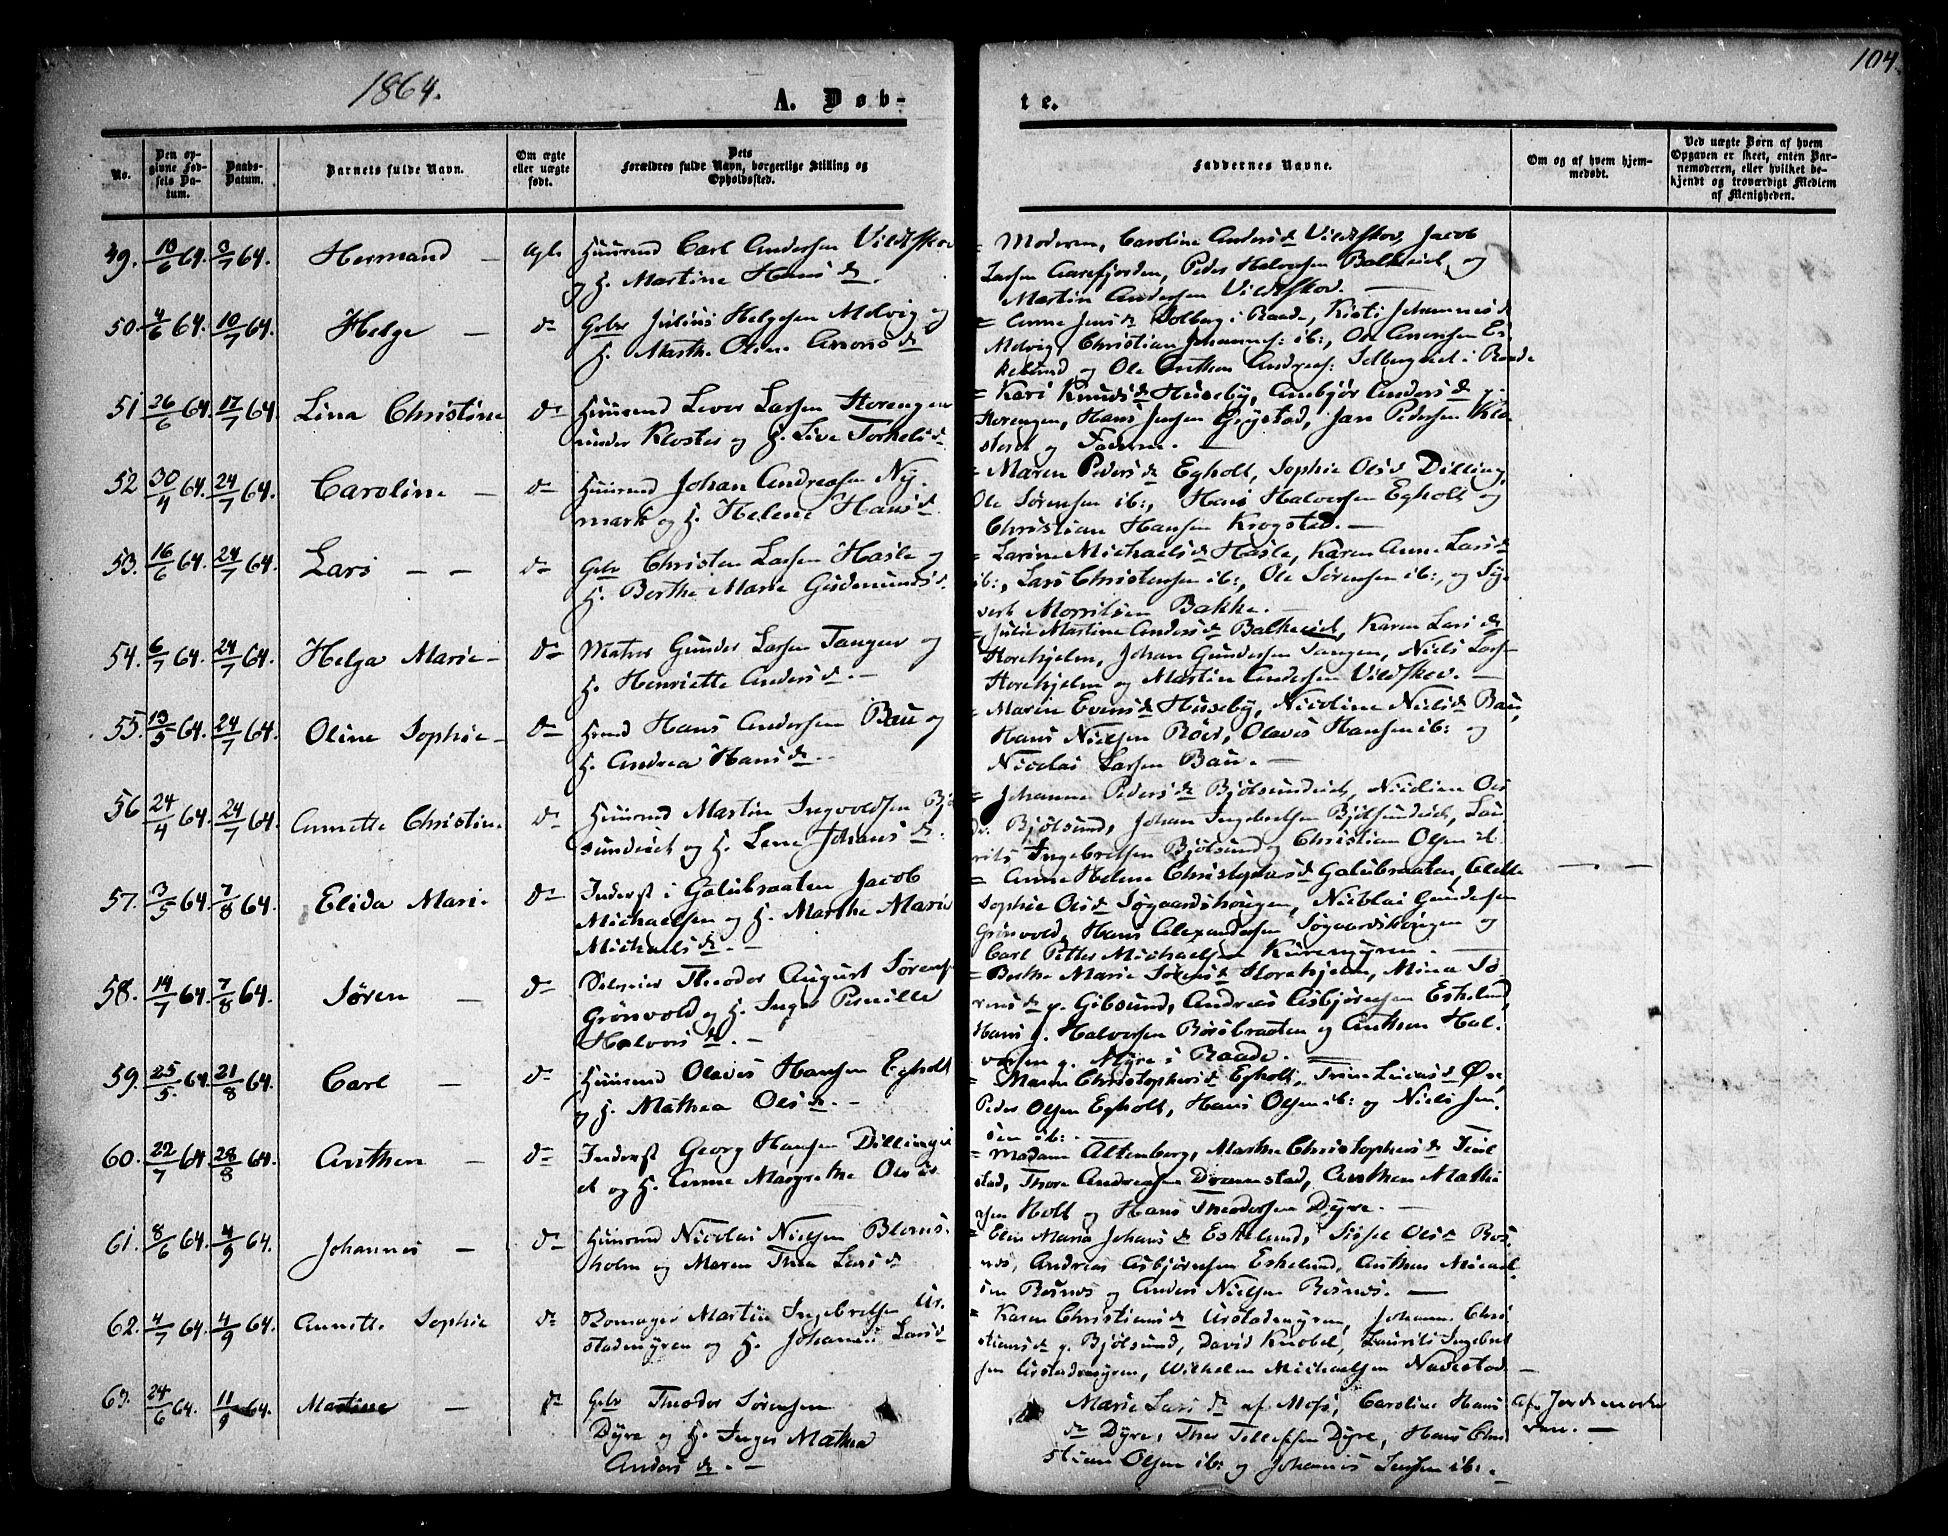 1864.
104.
A. Døb-
te.
No.
Den op-
givne Fød-
sels Da-
tum.
Daabs-
Datum.
Barnets fulde Navn.
Om ægte
eller uægte
født.
Dets
Forældres fulde Navn, borgerlige Stilling og
Opholdssted.
Faddernes Navne.
Om og af hvem hjem-
medøbt.
Ved uægte Børn af hvem
Opgaven er skeet, enten Bar-
nemoderen, eller hvilket be-
kjendt og troværdigt Medlem
af Menigheden.
49. 10/6 64. 3/7 64. Hermand — Huusmd Carl Andersen Vildtskov
og H. Martine Hansd.
= Moderen, Caroline Andersd Vildtskov, Jacob
Larsen Aarefjorden, Peder Halvorsen Balkeiet og
Martin Andersen Vildtskov. —
50. 4/6 64. 10/7 64. Helge — do Gbr Julius Helgesen Melvig og
H. Marthe Oline Amonsd
= Anne Jensd Solberg i Raade, Kisti Johannesd
Melvig, Christian Johannes: ib:, Ole Amonsen Es-
kelund og Ole Anthon Andreas: Solbergeiet i Raade
51. 26/6 64. 17/7 64. Lina Christine do Huusmd Lever Larsen Storengen
under Kloster og H. Live Torkelsd
= Kari Knudsd Huseby, Anbjør Andersd g.
Storengen, Hans Jensen Grystad, Jan Pedersen Klo-
steret og Faderen. —
52 30/4 64. 24/7 64. Caroline — do Huusmd Johan Andreasen Ny-
mark og H. Helene Hansd.
= Maren Pedersd Egholt, Sophie Olsd Dilling,
Ole Sørensen ib:, Hans Halvorsen Egholt og
Christian Hansen Krogstad. —
53. 16/6 64. 24/7 64. Lars — — do Gbr Christen Larsen Hasle og
H. Berthe Marie Gudmundsd.
= Larine Michaelsd Hasle, Karen Anne Larsd
ib:, Lars Christensen ib:, Ole Sørensen ib:, og Sy-
vert Morritsen Bakke. —
54. 6/7 64. 24/7 64. Helga Marie — do Matros Gunder Larsen Tangen og
H. Henriette Andersd. —
= Julie Martine Andersd Balkeeiet, Karen Larsd
Storehjelm, Johan Gundersen Tangen, Niels Lars-
Storehjelm og Martin Andersen Vildtskov. —
55. 13/5 64. 24/7 64. Oline Sophie — do Huusmd Hans Andersen Bau og
H. Andrea Hansd. —
= Maren Evensd Huseby, Nicoline Nielsd Bau,
Hans Nielsen Röer, Olaves Hansen ib: og
Nicolai Larsen Bau. —
56 24/4 64. 24/7 64. Annette Christine. do Huusmd Martin Ingvoldsen Bjøl-
sundeiet og H. Lene Johansd.
= Johanne Pedersd Bjölsundeiet, Nicoline Ols
dr. Bjölsund, Johan Ingebretsen Bjölsundeiet, Lau-
rits Ingebretsen Bjölsund og Christian Olsen ib.
57. 3/5 64. 7/8 64. Elida Marie do Inderst i Galubraaten Jacob
Michaelsen og H. Marthe Marie
Michaelsd. —
= Anne Helene Christophersd Galubraaten,
Sophie Olsd Søgaardshougen, Nicolai Gundersen
Grönvold, Hans Alexandersen Søgaardshougen og
Carl Petter Michaelsen Kurenmyren. —
58. 14/7 64. 7/8 64. Søren — do Selveier Theodor August Sørens-
Grönvold og H. Inger Pernille
Halvorsd. —
= Berthe Marie Sørensd Storehjelm, Mina Sø-
rensd g. Gibsund, Andreas Asbjörnsen Eskelund,
Hans g. Halvorsen Börsbraaten og Anthon Hal-
vorsen g. Myre i Raade. —
59. 25/5. 64. 21/8 64. Carl — do Huusmd Olaves Hansen Egholt
og H. Mathea Olsd. —
= Maren Christophersd Egholt, Trine Lucasd Øre,
Peder Olsen Egholt, Hans Olsen ib: og Niels Jen-
sen ib: —
60. 22/7 64 28/8 64. Anthon — do Inderst Georg Hansen Dillingei-
et og H. Anne Margrethe Olsd
= Madam Altenborg, Marthe Christophersd
stad, Thore Andreasen Dramstad, Anthon Mathi-
asen Holt og Hans Theodorsen Dyre. —
61. 8/6 64. 4/9 64. Johannes — do Huusmd Nicolai Nielsen Bloms-
holm og Maren Thea Larsd
= Elin Maria Johansd Eskelund, Sissel Olsd Ros-
næs, Andreas Asbjörnsen Eskelund, Anthon Micael-
sen Rosnæs og Anders Nielsen Rosnæs. —
62. 4/7 64. 4/9 64. Annette Sophie do Bomager Martin Ingebretsen Ur-
stadmyren og H. Johanne Larsd
= Karen Christiansd Urstadmyren, Johanne Chri-
stiansd g. Bjölsund, David Knobel, Laurits Ingebret-
sen Urstadmyren, Wilhelm Michaelsen Navestad. —
63. 24/6 64. 11/9 64. Martine — do Gbr Theodor Sørensen
Dyre og H. Inger Mathea
Andersd. —
Marie Larsd af Moss, Caroline Hans
d Dyre, Thor Tollefsen Dyre, Hans Chri-
stian Olsen ib: og Johannes Jensen ib: —
Af Jordemode-
ren. —